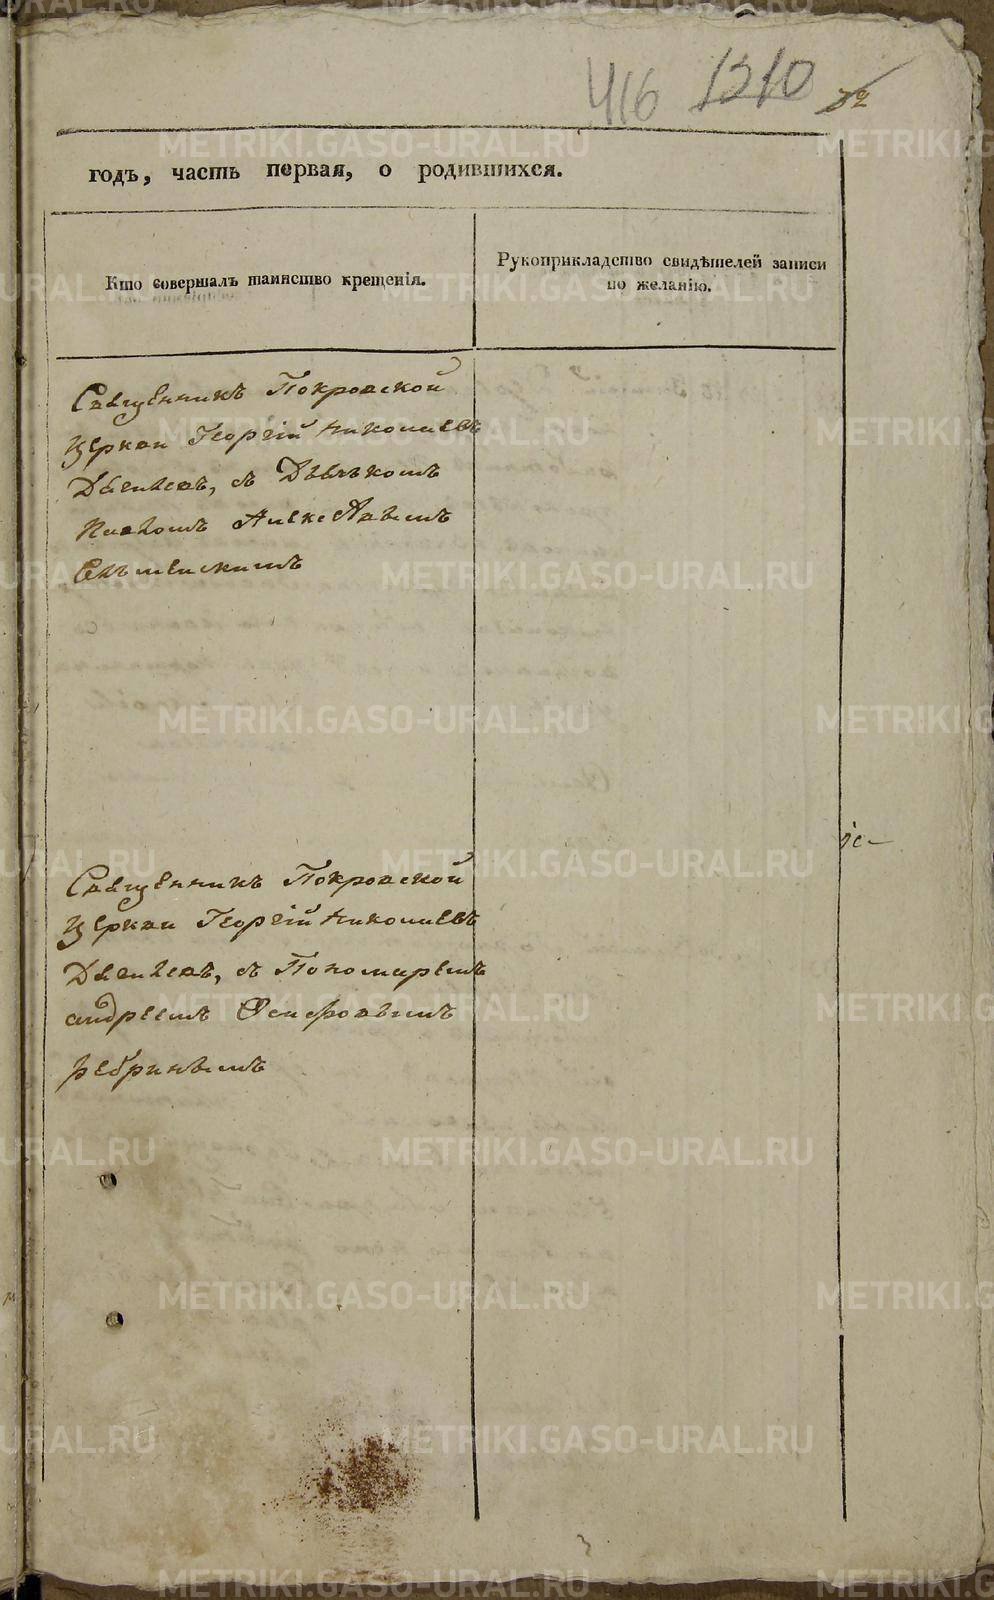 416 1310 32
годъ, часть первая, о родившихся.
Кто совершалъ таинство крещенія.
Рукоприкладство свидѣтелей записи
по желанію.
Священникъ Покровской
церкви Георгій Николаевъ
съ Дьячкомъ
Павломъ Алексѣевымъ
Священникъ Покровской
церкви Георгій Николаевъ
съ Пономаремъ
Андреемъ Осиповымъ
Ребринымъ
METRIKI.GASO-URAL.RU